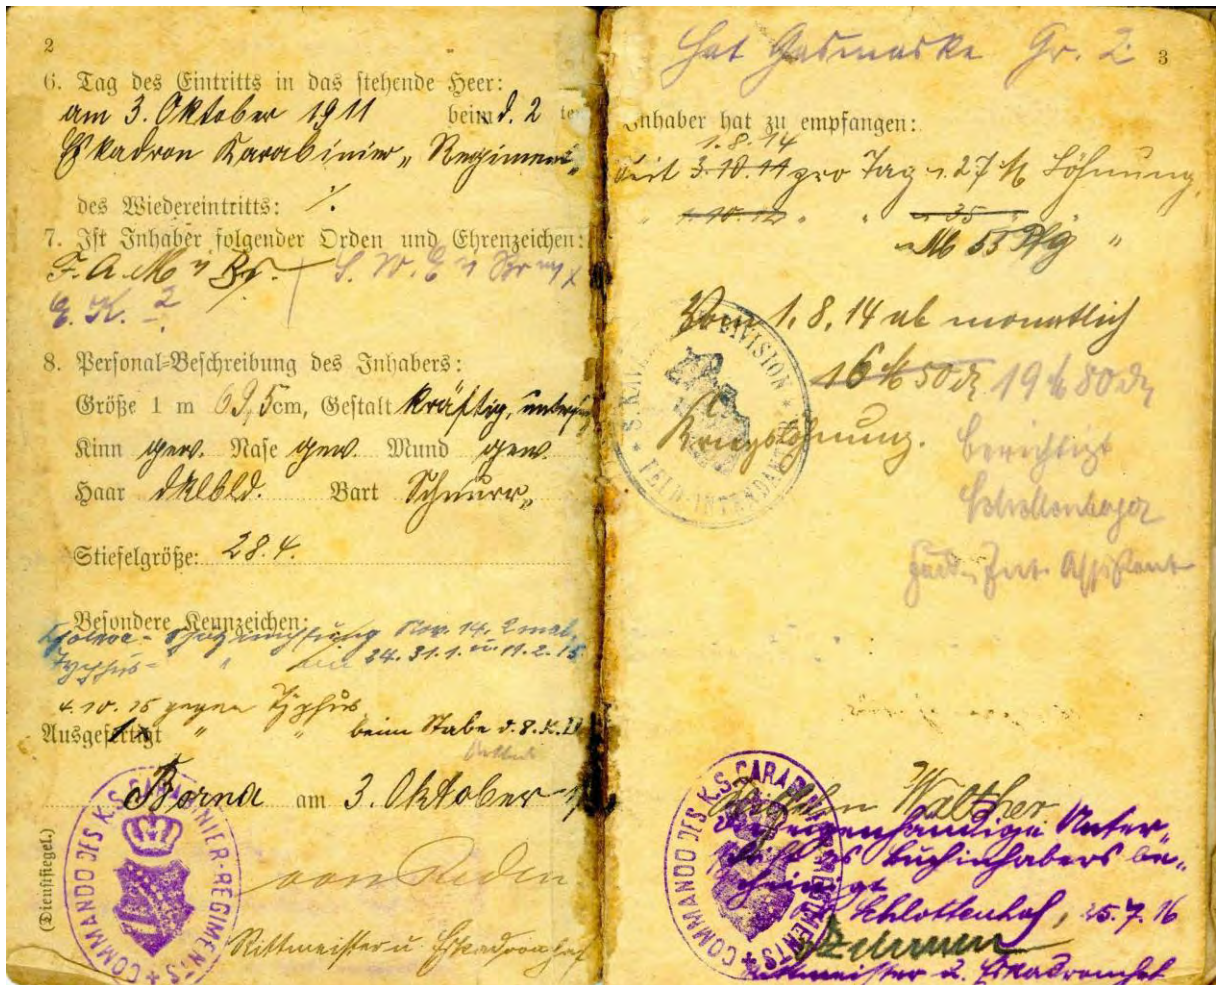 2
6. Tag des Eintritts in das stehende Heer:
am 3. Oktober 1911 beim d. 2 te
Eskadron Karabinier„ Regiment„
des Wiedereintritts: ./.
7. Ist Inhaber folgender Orden und Ehrenzeichen:
F. A. M
E. K. 2
8. Personal-Beschreibung des Inhabers:
Größe 1 m 69,5cm, Gestalt kräftig, unters
Kinn gew. Nase gew. Mund gew.
Haar dklbld. Bart Schnurr„
Stiefelgröße: 28.4.
Besondere Kennzeichen:
Cholera - Schutzimpfung Nov. 14. 2mal.
Typhus- " 24. 31. 1. 11. 2. 15
4. 10. 15 gegen Typhus
Ausgefertigt " " beim Stabe d. 8. K.
Borna am 3. Oktober
(Dienstsiegel.)
COMMANDO DES K.S. CARABINIER-REGIMENTS
von Reden
Rittmeister u. Eskadronchef
Hat Gasmaske Gr. 2.
3
Inhaber hat zu empfangen:
1. 8. 14
Seit 3. 10. 11 pro Tag 27 Löhnung,
" 1. 10. 12 " " 35
M 55 Pfg "
Vom 1. 8. 14 ab monatlich
16 M 50 19 M 80
Kriegslöhnung.
DIVISION
FELD-INTENDANTUR
berichtigt
Int. Assistent
COMMANDO DES K.S. CARABINIER-REGIMENTS
Walther.
eigenhändige Unter„
schrift des Buchinhabers be„
scheinigt
Schlottenhof, 25. 7. 16
Rittmeister u. Eskadronchef